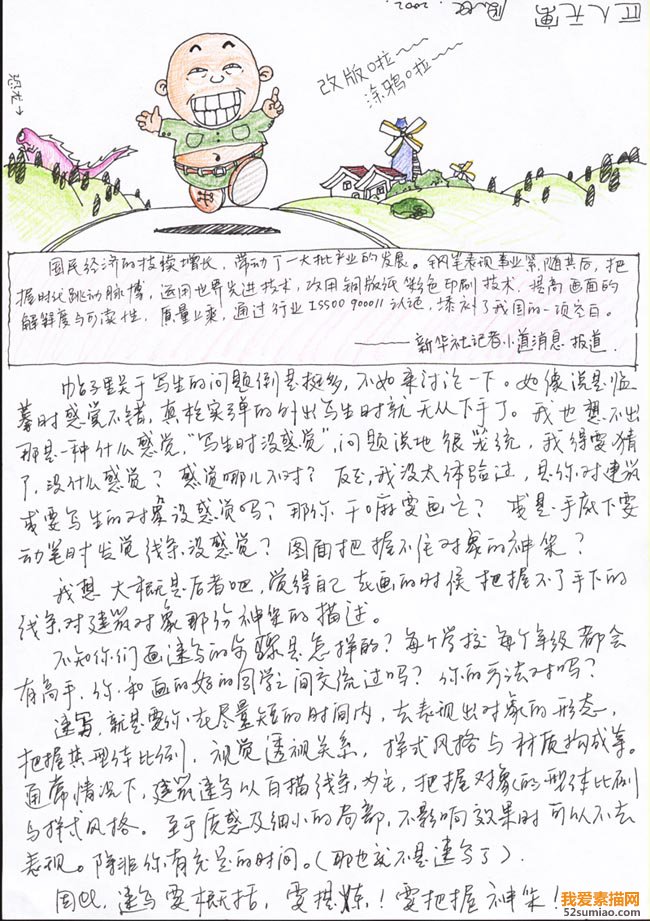 2002.
恐龙→
改版啦~~~
涂鸦啦~~~
国民经济的持续增长,带动了一大批产业的发展。钢笔表现事业紧随其后,把
握时代跳动脉搏,运用世界先进技术,改用铜版纸彩色印刷技术,提高画面的
解释度与可读性,质量上乘,通过行业ISS00 90001认证,填补了我国的一项空白。
——新华社记者小道消息报道.
帖子里关于写生的问题倒是挺多,不如来讨论一下。好像说是临
摹时感觉不错,真枪实弹的外出写生时就无从下手了。我也想不出
那是一种什么感觉,"写生时没感觉",问题说地很笼统,我得要猜
了,没什么感觉?感觉哪儿不对?反正,我没太体验过,是你对建筑
或要写生的对象没感觉吗?那你干嘛要画它?或是手底下要
动笔时发觉线条没感觉?图面把握不住对象的神采?
我想大概是后者吧,觉得自己在画的时候把握不了手下的
线条对建筑对象那份神采的描述。
不知你们画速写的步骤是怎样的?每个学校每个年级都会
有高手,你和画的好的同学之间交流过吗?你的方法对吗?
速写,就是要你在尽量短的时间内,去表现出对象的形态,
把握其型体比例,视觉透视关系,样式风格与材质构成等。
通常情况下,建筑速写以白描线条为主,把握对象的型体比例
与样式风格。至于质感及细小的局部,不影响效果时可以不去
表现。除非你有充足的时间。(那也就不是速写了).
因此,速写要概括,要提炼!要把握神采!
我爱素描网
52sumiao.com